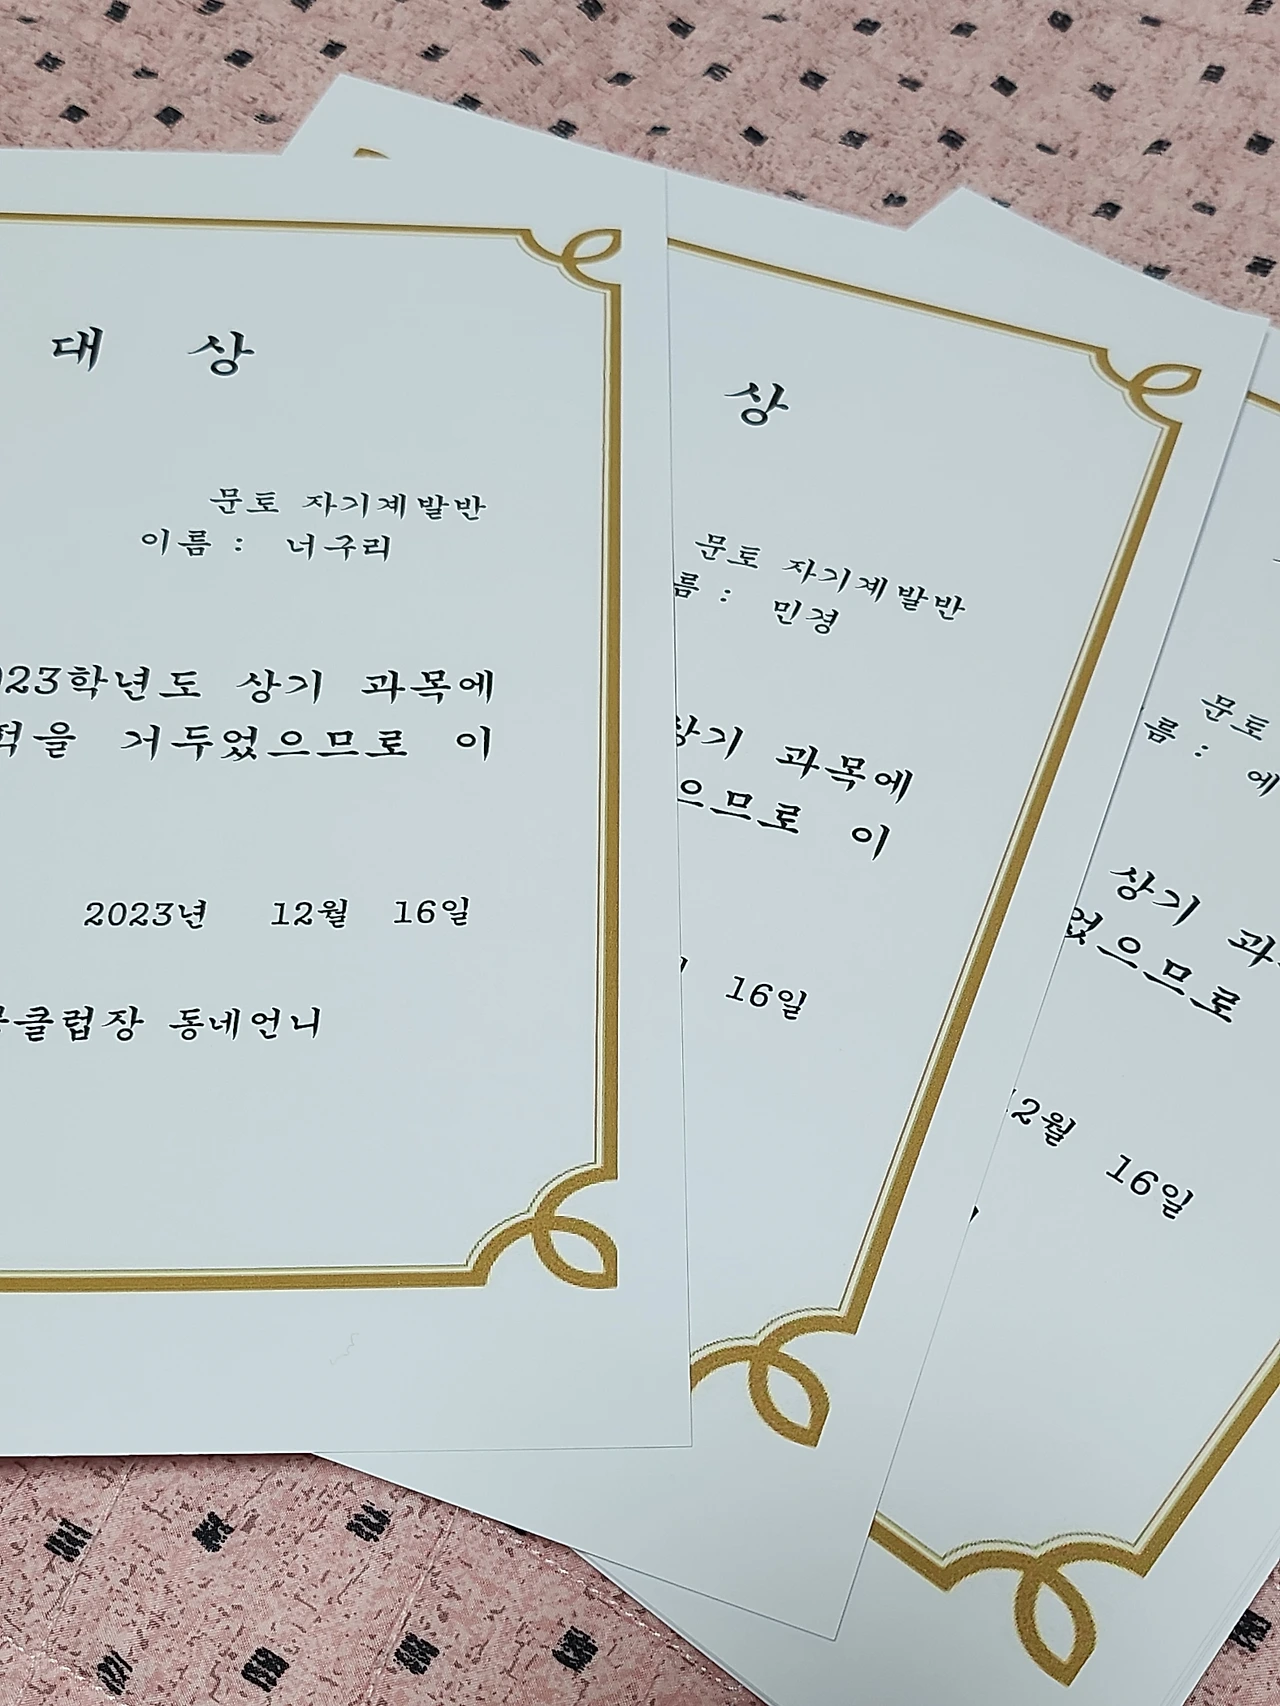 대 상
문토 자기계발반
이름 : 너구리
2023학년도 상기 과목에
적을 거두었으므로 이
2023년 12월 16일
클럽장 동네언니
상
문토 자기계발반
름 : 민경
상기 과목에
으므로 이
16일
문토
름 : 에
상기 과
었으므로
12월 16일